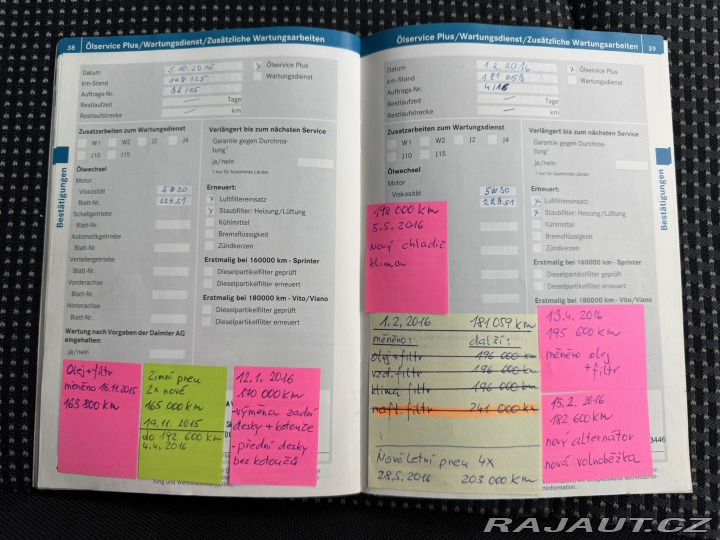 38 Ölservice Plus/Wartungsdienst/Zusätzliche Wartungsarbeiten
Datum
km-Stand
Auftrags-Nr.
Restlaufzeit — Tage
Restlaufstrecke — km
x Ölservice Plus
Wartungsdienst
Zusatzarbeiten zum Wartungsdienst
W1 W2 J2 J4
J10 J15
Ölwechsel
Motor
Viskosität 5W30
Blatt-Nr. 229.51
Schaltgetriebe
Blatt-Nr.
Automatikgetriebe
Blatt-Nr.
Verteilergetriebe
Blatt-Nr.
Vorderachse
Blatt-Nr.
Hinterachse
Blatt-Nr.
Wartung nach Vorgaben der Daimler AG
eingehalten:
ja/nein
Verlängert bis zum nächsten Service
Garantie gegen Durchros-
tung¹
ja/nein
1 nur für bestimmte Länder
Erneuert:
x Luftfiltereinsatz
x Staubfilter: Heizung/Lüftung
Kühlmittel
Bremsflüssigkeit
Zündkerzen
Erstmalig bei 160000 km - Sprinter
Dieselpartikelfilter geprüft
Dieselpartikelfilter erneuert
Erstmalig bei 180000 km - Vito/Viano
Dieselpartikelfilter geprüft
Dieselpartikelfilter erneuert
Bestätigungen
Olej+filtr
měněno 16.11.2015
163 800 km
Zimní pneu
2x nové
165 000 km
19.11.2015
do 192 600 km
4.4.2016
12.1.2016
170 000 km
-výměna zadní
desky + kotouče
-přední desky
bez kotoučů
Ölservice Plus/Wartungsdienst/Zusätzliche Wartungsarbeiten 39
Datum 1.2.2016
km-Stand 181 059
Auftrags-Nr. 4/16
Restlaufzeit — Tage
Restlaufstrecke — km
x Ölservice Plus
Wartungsdienst
Zusatzarbeiten zum Wartungsdienst
W1 W2 J2 J4
J10 J15
Ölwechsel
Motor
Viskosität 5W30
229.51
Verlängert bis zum nächsten Service
Garantie gegen Durchros-
tung¹
ja/nein
1 nur für bestimmte Länder
Erneuert:
x Luftfiltereinsatz
x Staubfilter: Heizung/Lüftung
Kühlmittel
Bremsflüssigkeit
Zündkerzen
Erstmalig bei 160000 km - Sprinter
Dieselpartikelfilter geprüft
Dieselpartikelfilter erneuert
Erstmalig bei 180000 km - Vito/Viano
Bestätigungen
198 000 km
5.5.2016
Nový chladič
klima
1.2.2016 181 059 km
měněno: další:
olej+filtr 196 000 km
vzd. filtr 196 000 km
klima filtr 196 000 km
naft. filtr 241 000 km
Nové letní pneu 4x
28.5.2016 203 000 km
13.4.2016
195 600 km
měněno olej
+filtr
15.2.2016
182 600 km
nový alternátor
nová volnoběžka
3446
RAJAUT.CZ